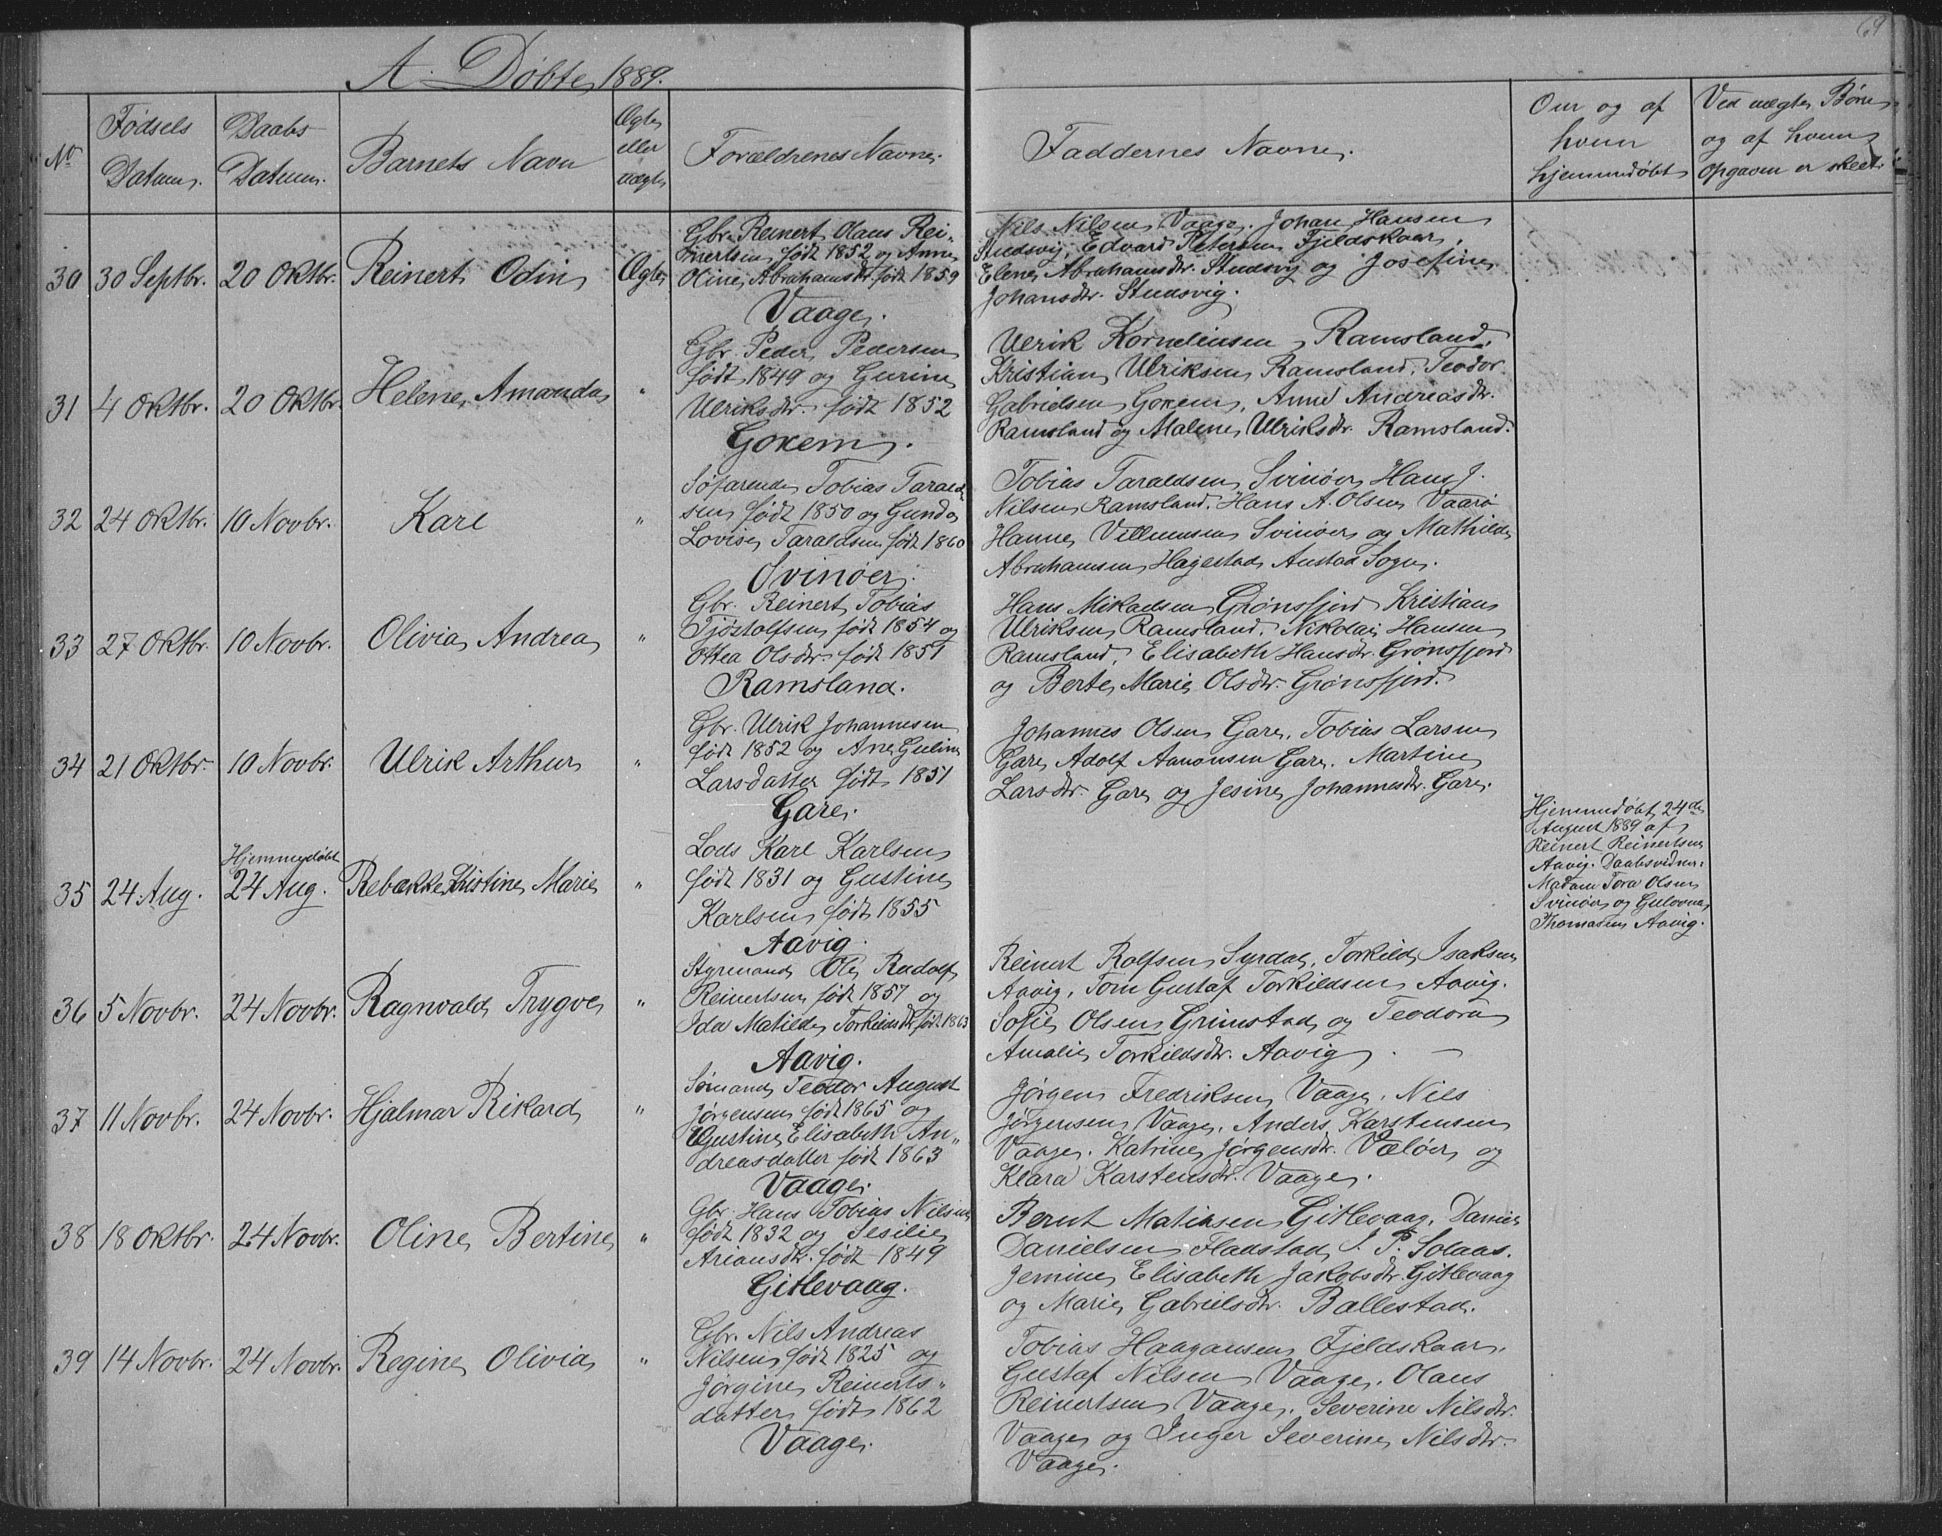 69
A. Døbte, 1889.
No
Fødsels Datum.
Daabs Datum.
Barnets Navn
Ægte eller uægte
Forældrenes Navne.
Faddernes Navne.
Om og af hvem hjemmedøbt
Ved uægte Børn og af hvem opgaven er skeet
30 30 Septbr. 20 Oktbr. Reinert Odin Ægte
Gbr. Reinert Olaus Rei-
nertsen født 1852 og Anne
Oline Abrahamsdtr født 1859
Vaage.
Nils Nilsen Vaage. Johan Hansen
Studsvig, Edvard Petersen Fjeldskaar,
Elene Abrahamsdtr. Studsvig og Josefine
Johansdtr. Studsvig.
31 4 Oktbr. 20 Oktbr. Helene Amanda "
Gbr. Peder Pedersen
født 1849 og Gurine
Ulriksdtr. født 1852
Goxem.
Ulrik Korneliusen Ramsland.
Kristian Ulriksen Ramsland, Teodor
Gabrielsen Goxem, Anne Andreasdtr.
Ramsland og Malene Ulriksdtr. Ramsland.
32 24 Oktbr. 10 Novbr. Karl "
Søfarende Tobias Tarald
sen født 1850 og Gunda
Lovise Taraldsen født 1860
Svinøer.
Tobias Taraldsen Svinøer Hans J.
Nilsen Ramsland. Hans A. Olsen Vaarø
Hanne Villumsen Svinøer og Mathilde
Abrahamsen Hagestad Austad Sogn.
33 27 Oktbr. 10 Novbr. Olivia Andrea "
Gbr. Reinert Tobias
Tjøstolfsen født 1854 og
Ottea Olsdtr. født 1857
Ramsland.
Hans Mikaelsen Grønsfjord Kristian
Ulriksen Ramsland. Nikolai Hansen
Ramsland, Elisabeth Hansdtr. Grønsfjord
og Berte Marie Olsdtr. Grønsfjord.
34 21 Oktbr. 10 Novbr. Ulrik Arthur "
Gbr. Ulrik Johannesen
født 1852 og Ane Guline
Larsdatter født 1851
Gare.
Johannes Olsen Gare, Tobias Larsen
Gare Adolf Aanonsen Gare. Martine
Larsdtr. Gare og Jesine Johannesdtr. Gare.
35 24 Aug. Hjemmedøbt 24 Aug. Rebække Kristine Marie "
Lods Karl Karlsen
født 1831 og Gustine
Karlsen født 1855
Aavig.
Hjemmedøbt 24de
August 1889 af
Reinert Reinertsen
Aavig. Daabsvidner:
Madam Tora Olsen
Svinøer og Gulovna
Thomasen Aavig.
36 5 Novbr. 24 Novbr. Ragnvald Trygve "
Styrmand Ole Rudolf
Reinertsen født 1857 og
Ida Matilde Torkildsdtr født 1863
Aavig.
Reinert Rolfsen Syrdal, Torkild Isaksen
Aavig, Tom Gustaf Torkildsen Aavig.
Sofie Olsen Grimstad og Teodora
Amalie Torkildsdtr. Aavig. —
37 11 Novbr. 24 Novbr. Hjalmar Rikard "
Sømand Teodor August
Jørgensen født 1865 og
Gustine Elisabeth An-
dreasdatter født 1863
Vaage.
Jørgen Fredriksen Vaage. Nils
Jørgensen Vaage. Anders Karstensen
Vaage. Katrine Jørgensdtr. Væløer og
Klara Karstensdtr. Vaage.
38 18 Oktbr. 24 Novbr. Oline Bertine "
Gbr. Hans Tobias Nilsen
født 1832 og Sesilie
Ariansdtr. født 1849
Gitlevaag.
Bernt Matiasen Gitlevaag. Daniel
Danielsen Fladstad J. P. Solaas.
Jemine Elisabeth Jakobsdtr. Gitlevaag
og Marie Gabrielsdtr. Ballestad.
39 14 Novbr. 24 Novbr. Regine Olivia "
Gbr. Nils Andreas
Nilsen født 1825 og
Jørgine Reinerts-
datter født 1862
Vaage.
Tobias Haagansen Fjeldskaar.
Gustaf Nilsen Vaage. Olaus
Reinertsen Vaage. Severine Nilsdtr.
Vaage og Inger Severine Nilsdtr.
Vaage.